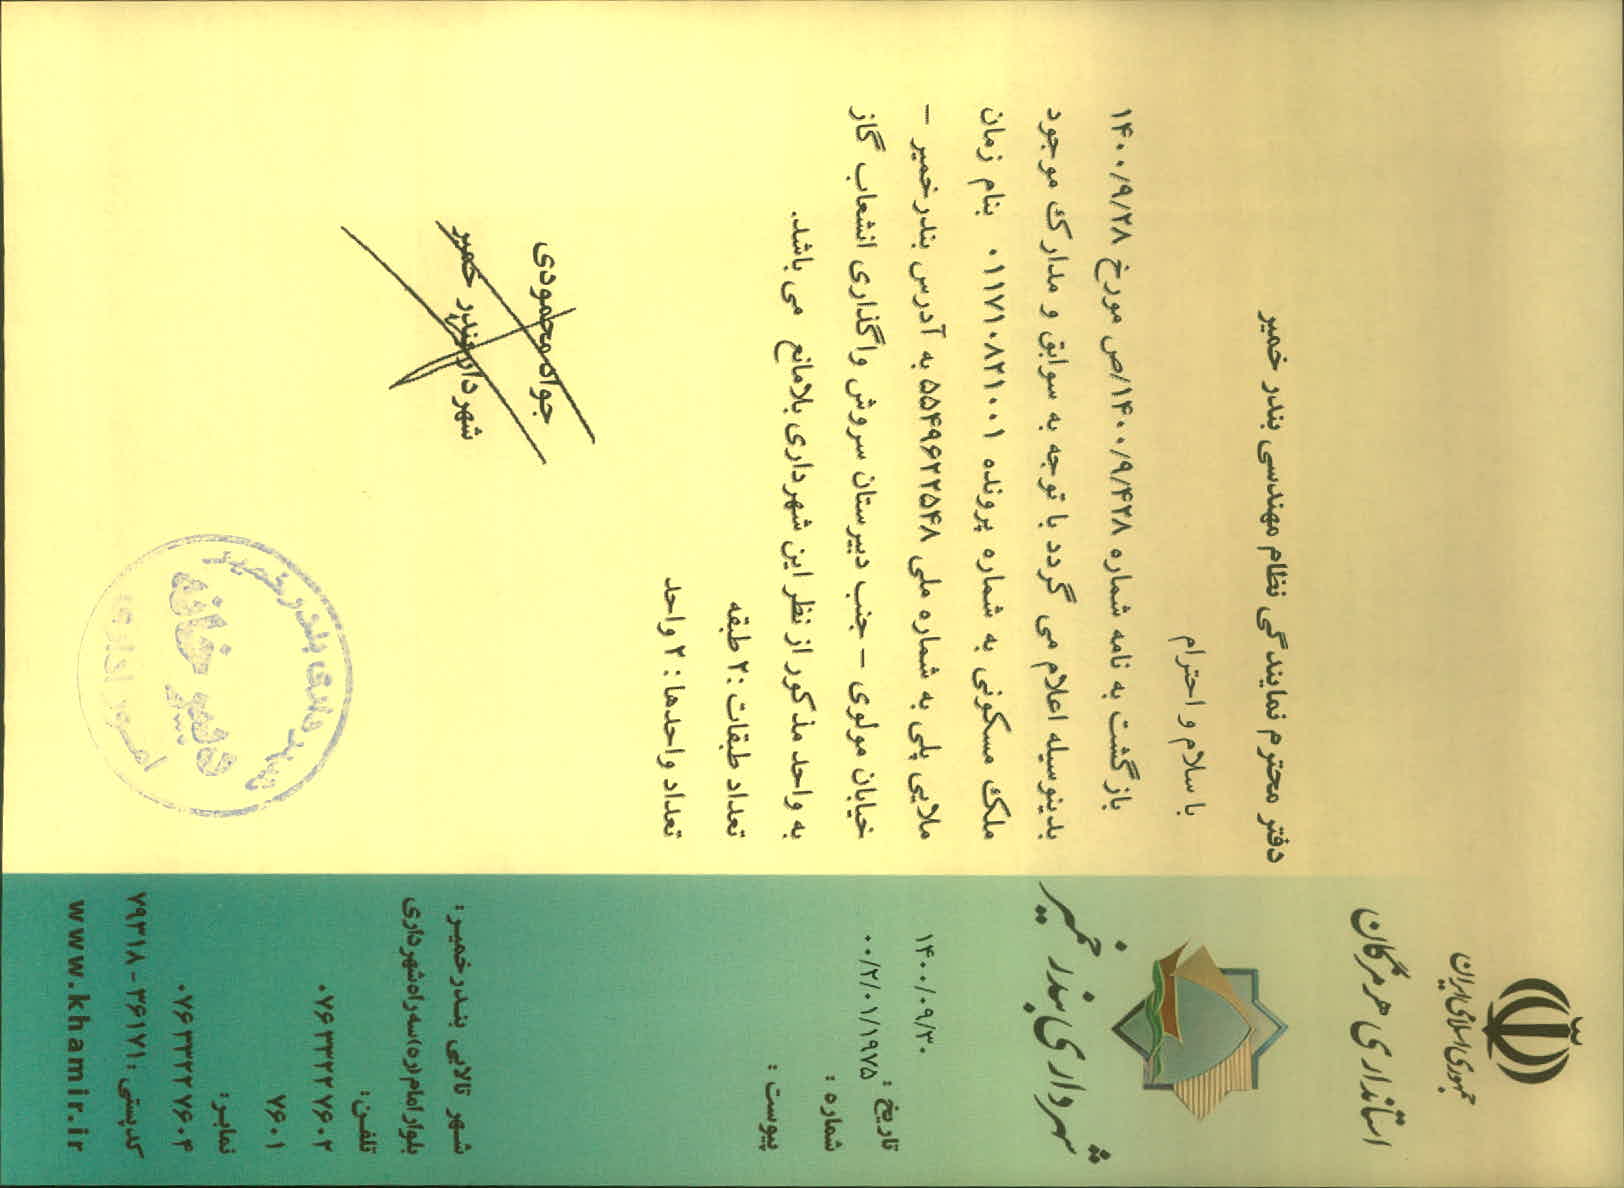 جمهوری اسلامی ایران
استانداری هرمزگان
شهرداری بندر خمیر
۱۴۰۰/۰۹/۳۰
تاریخ :
۰۰/۲/۰۱/۱۹۷۵
شماره :
پیوست :
شهر تالابی بندرخمیر :
بلوار امام (ره) سه راه شهرداری
تلفن:
۰۷۶۳۳۲۲۷۶۰۲
۷۶۰۱
نمابر:
۰۷۶۳۳۲۲۷۶۰۴
کدپستی : ۳۶۱۷۱ - ۷۹۳۱۸
www.khamir.ir
دفتر محترم نمایندگی نظام مهندسی بندر خمیر
با سلام و احترام
بازگشت به نامه شماره ۱۴۰۰/۹/۴۲۸/ص مورخ ۱۴۰۰/۹/۲۸
بدینوسیله اعلام می گردد با توجه به سوابق و مدارک موجود
ملک مسکونی به شماره پرونده ۰۱۱۷۱۰۸۲۱۰۰۱ بنام زمان
ملایی پلی به شماره ملی ۵۵۴۹۶۲۲۵۴۸ به آدرس بندرخمیر –
خیابان مولوی – جنب دبیرستان سروش واگذاری انشعاب گاز
به واحد مذکور از نظر این شهرداری بلامانع می باشد.
تعداد طبقات :۲ طبقه
تعداد واحدها : ۲ واحد
جواد محمودی
شهردار بندر خمیر
شهرداری بندر خمیر
دبیرخانه
امور اداری